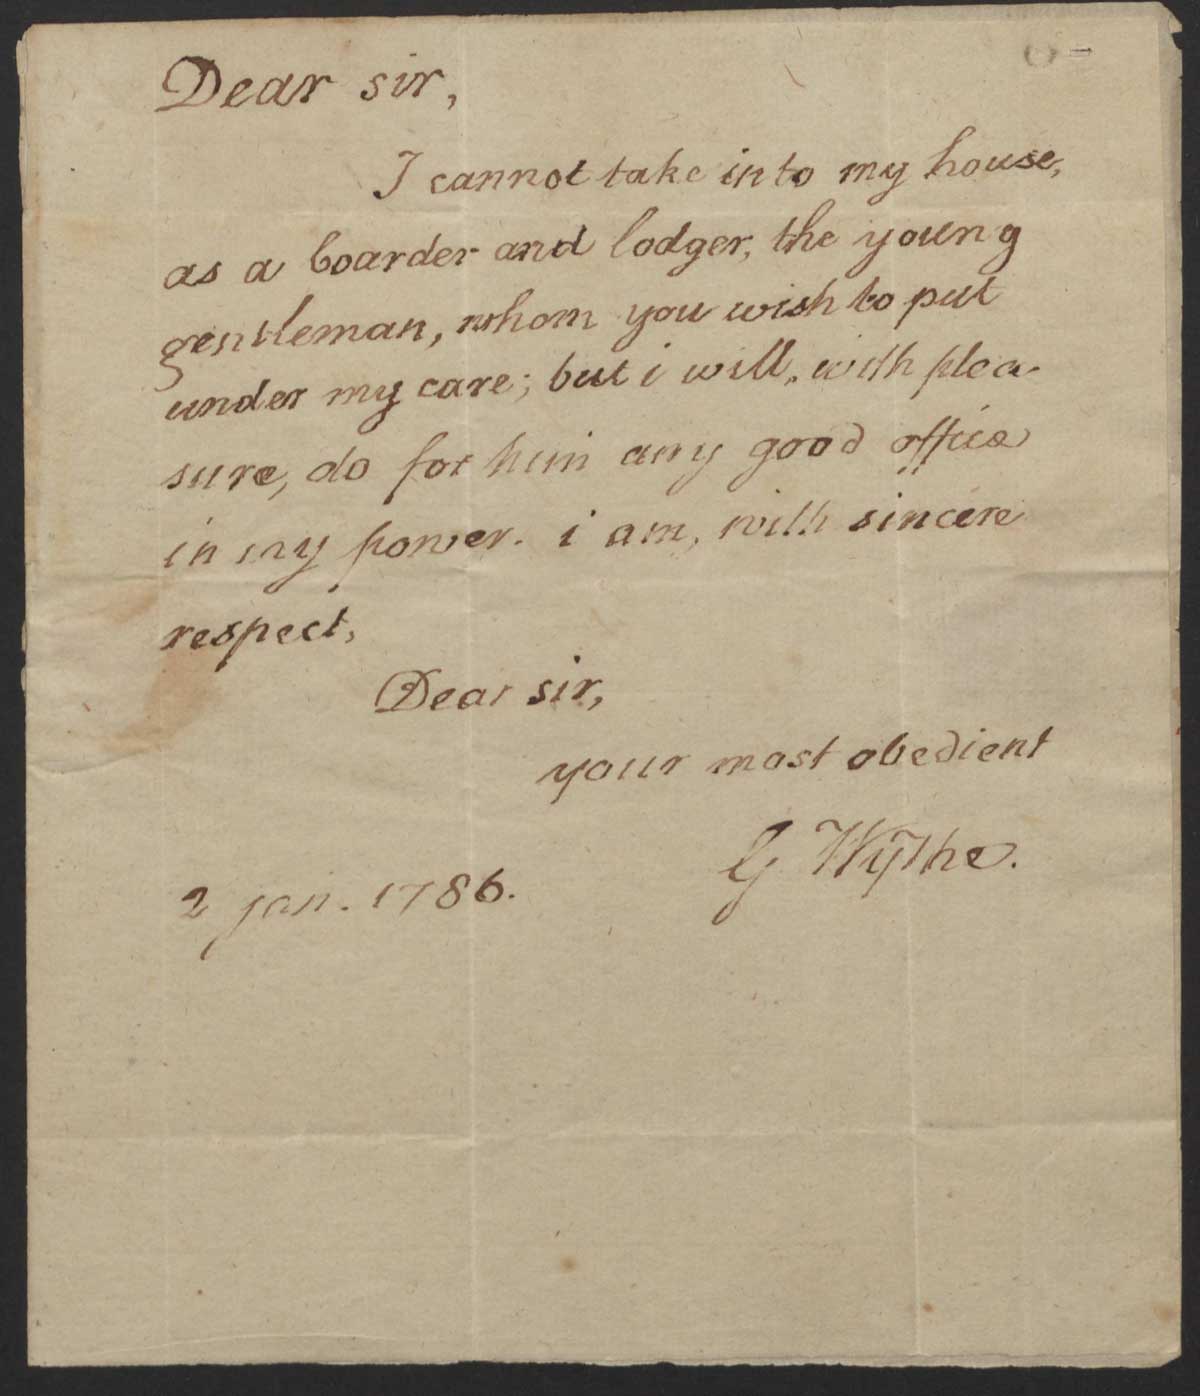 Dear sir,
I cannot take into my house,
as a boarder and lodger, the young
gentleman, whom you wish to put
under my care; but i will, with plea-
sure, do for him any good office
in my power. i am, with sincere
respect,
Dear sir,
your most obedient
G Wythe.
2 jan. 1786.